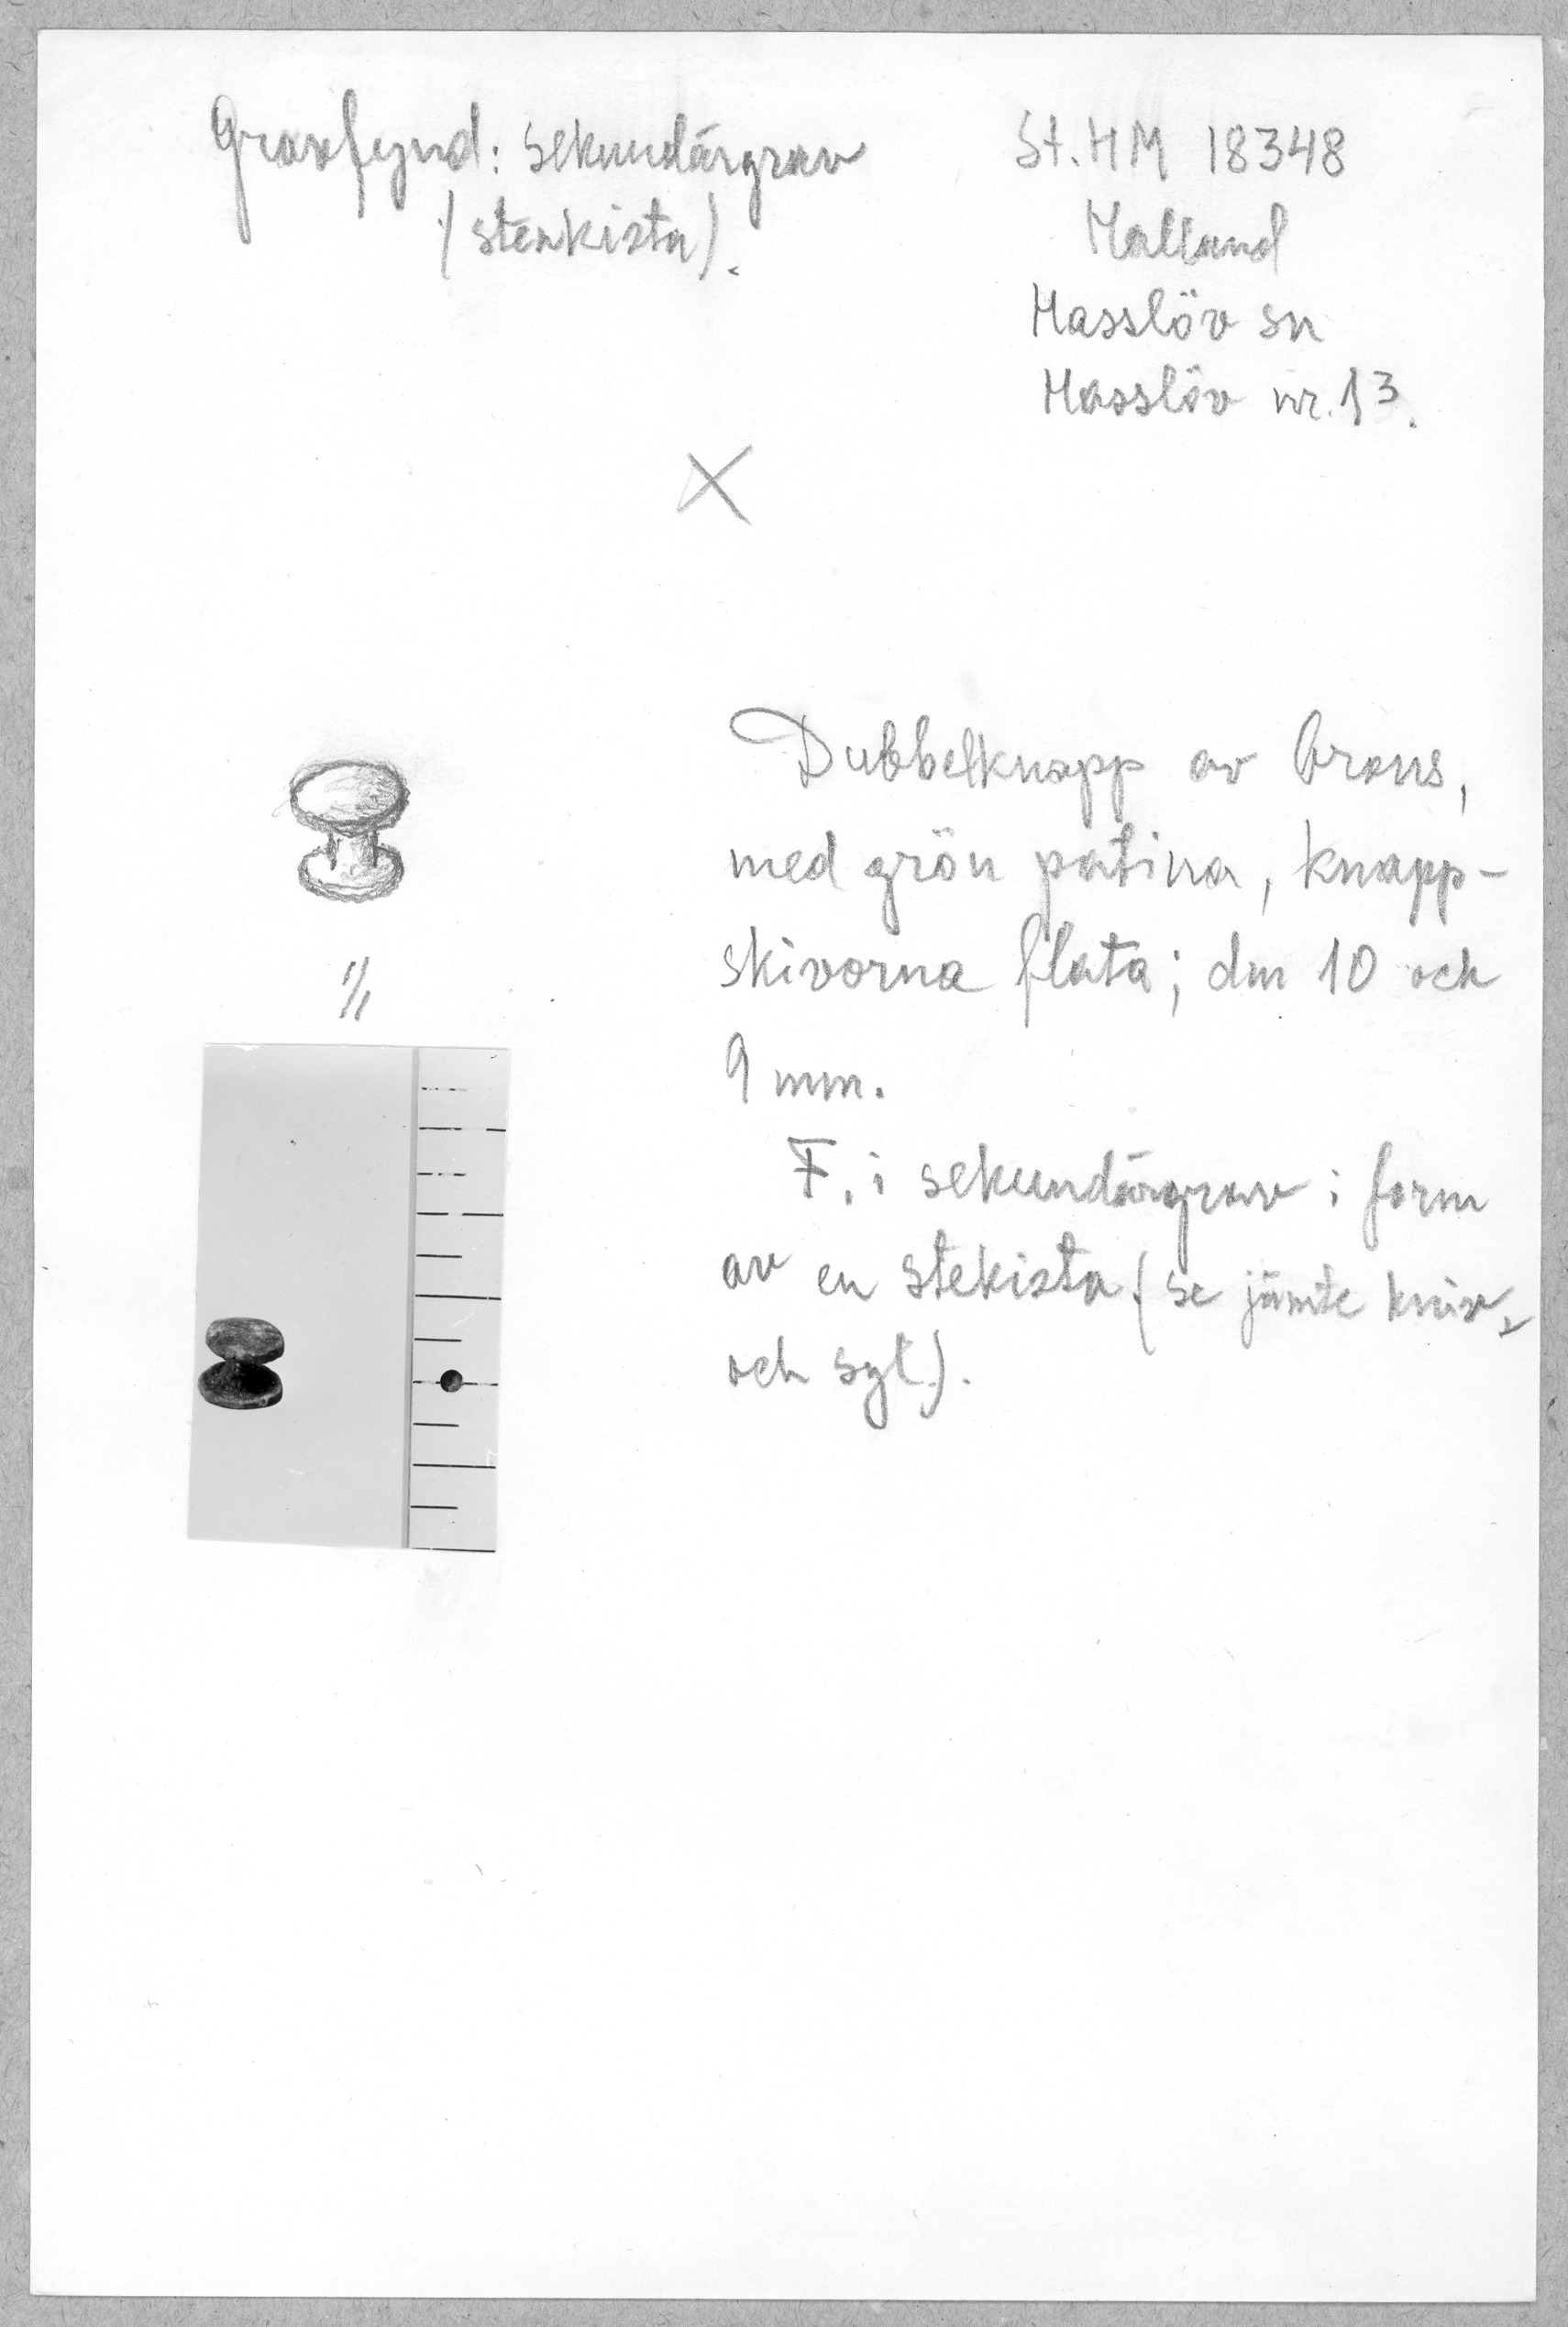 Gravfynd: sekundärgrav
(stenkista).
St. HM 18348
Halland
Hasslöv sn
Hasslöv nr. 13.
X
1/1
Dubbelknapp av brons,
med grön patina, knapp-
skivorna flata; dm 10 och
9 mm.
F. i sekundärgrav i form
av en stekista (se jämte kniv,
och syl).